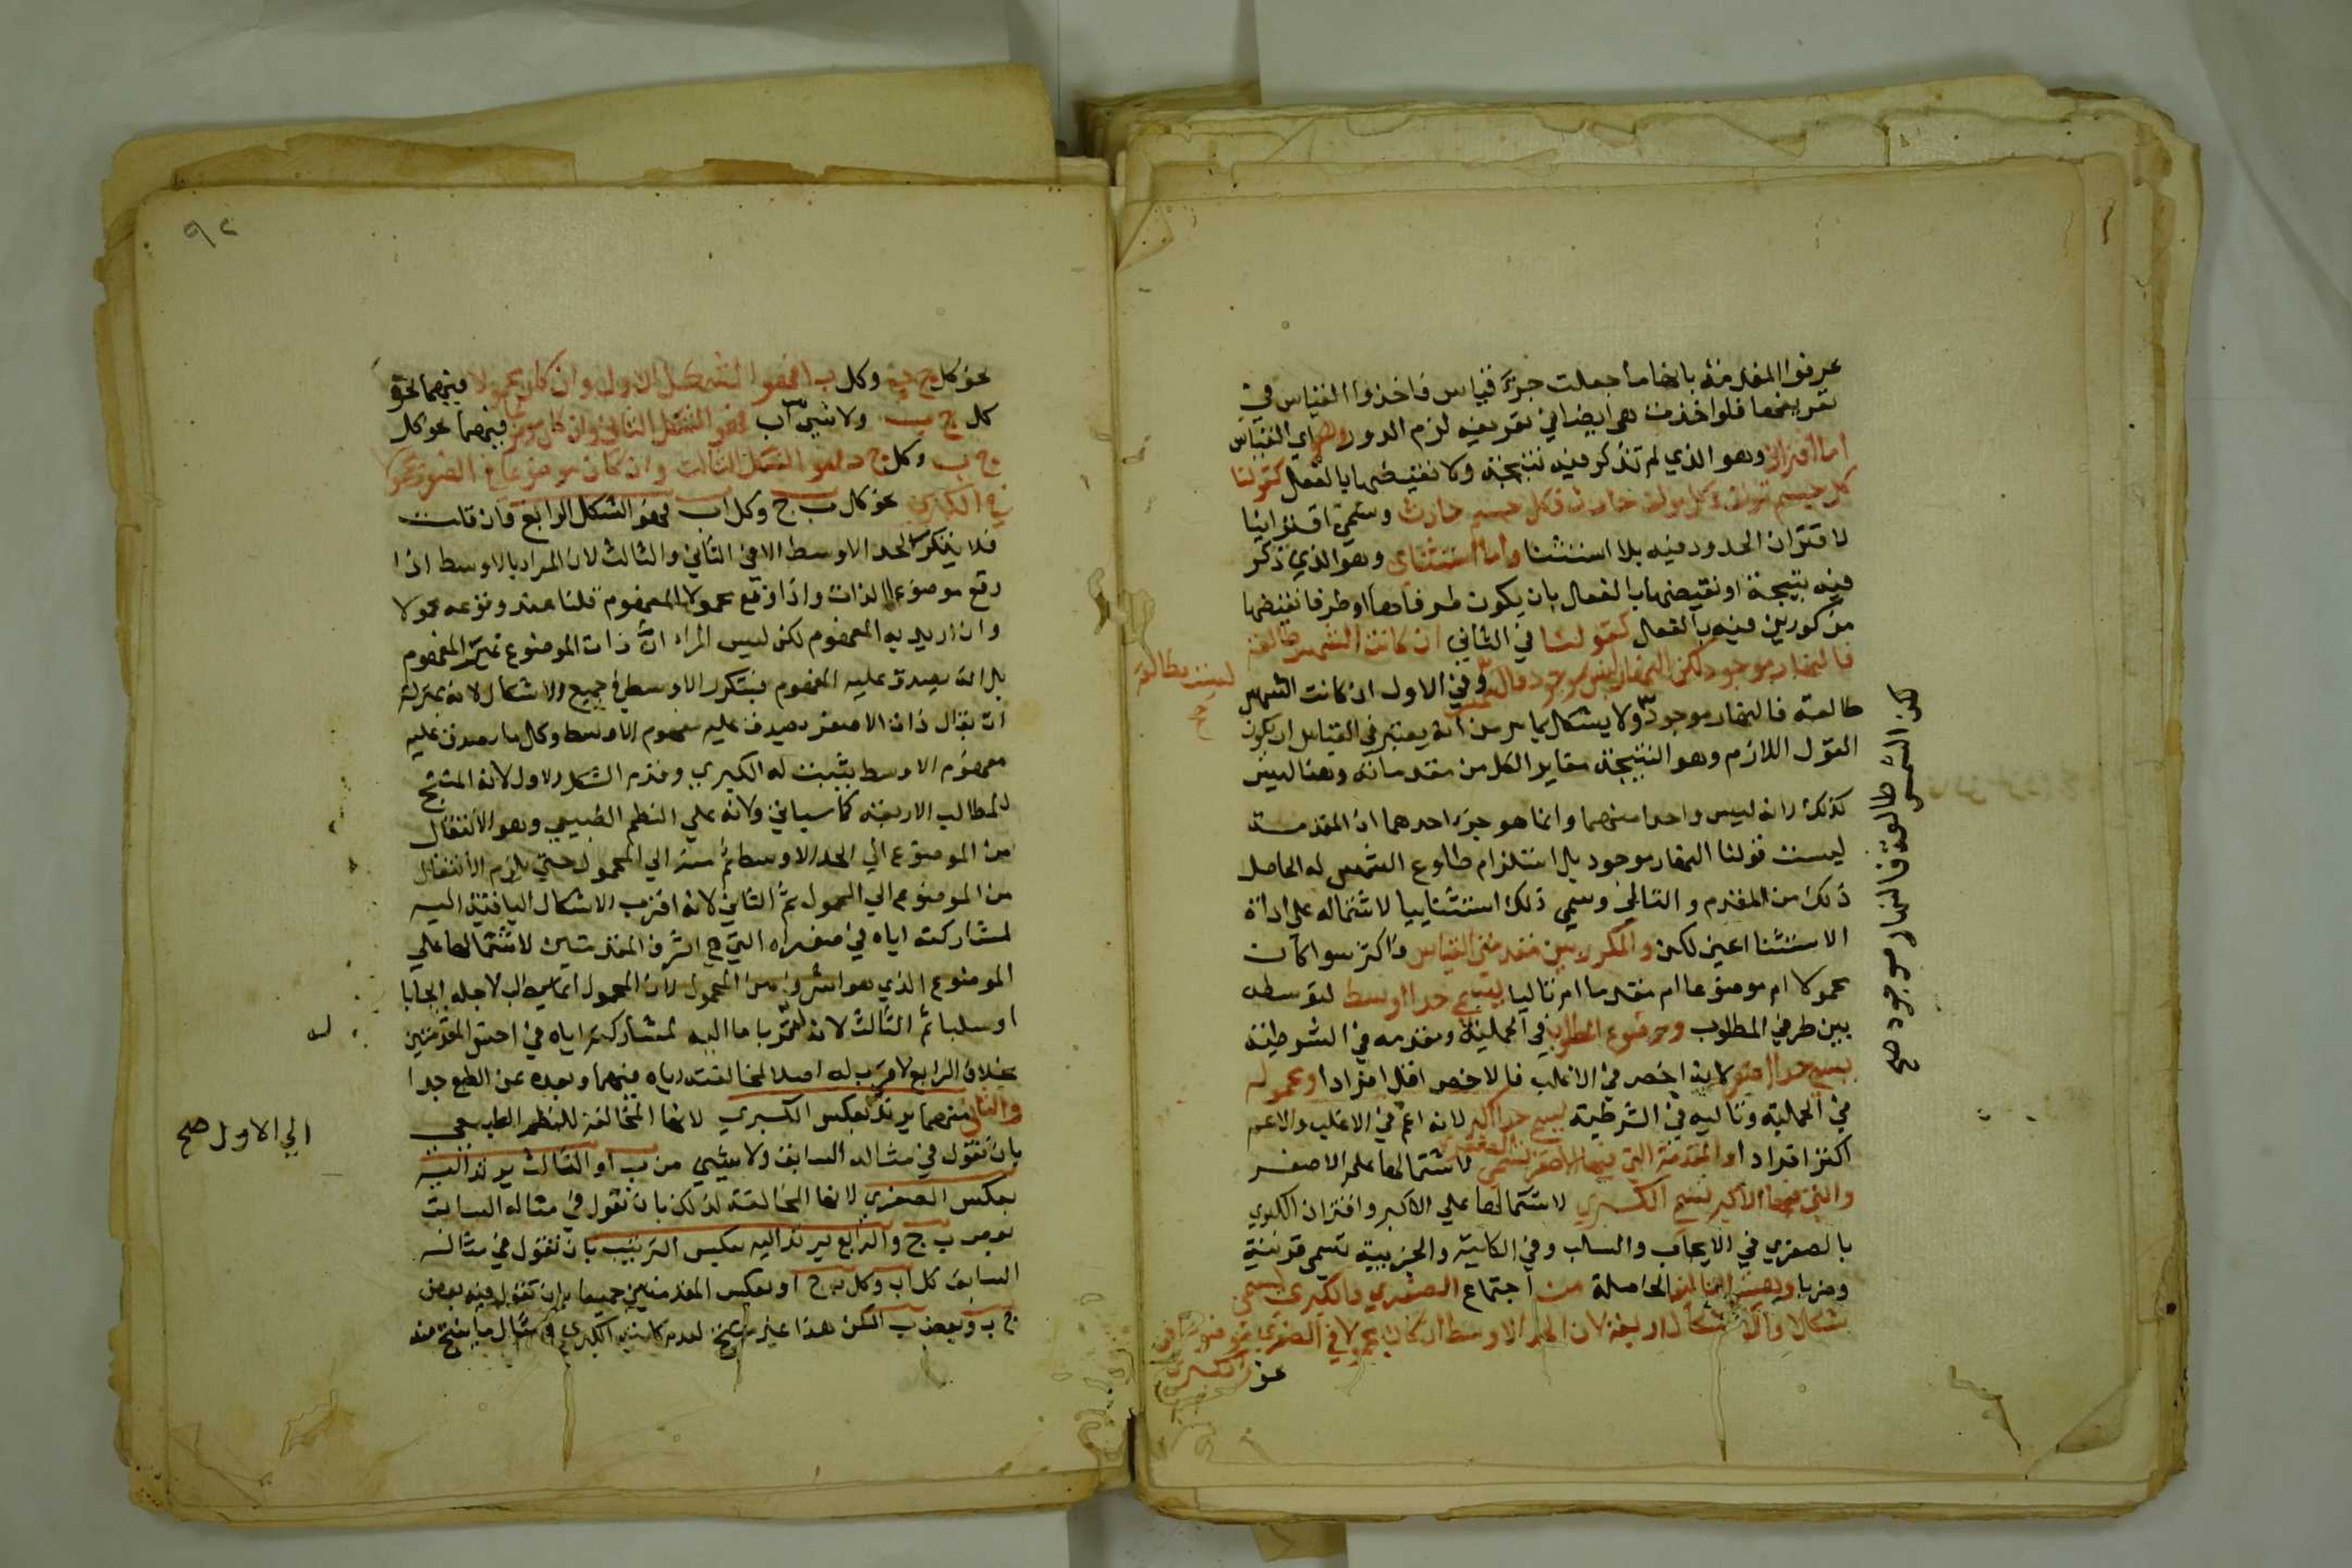 عرفوا المقدمة بانها ما جعلت جزء قياس فاخذوا القياس في
تعريفها فلو اخذت هي ايضا في تعريفه لزم الدور وهو اي القياس
اما اقتراني وهو الذي لم تذكر فيه نتيجة ولا نقيضها بالفعل كقولنا
كل جسم مولف وكل مولف حادث فكل جسم حادث وسمي اقترانيا
لاقتران الحدود فيه بلا استثنا واما استثنائي وهو الذي ذكر
فيه نتيجة او نقيضها بالفعل بان يكون طرفاها او طرفا نقيضها
مذكورين فيه بالفعل كقولنا في الثاني ان كانت الشمس طالعة
فالنهار موجود لكن النهار ليس بموجود فالشمس وفي الاول ان كانت الشمس
ليست بطالعة
صح
طالعة فالنهار موجود ولا يشكل بما مر من انه يعتبر في القياس ان يكون
القول اللازم وهو النتيجة مغاير الكل من مقدماته وهنا ليس
كذلك لانه ليس واحدا منهما وانما هو جزء احدهما اذ المقدمة
ليست قولنا النهار موجود بل استلزام طلوع الشمس له الحاصل
ذلك من المقدم والتالي وسمي ذلك استثنائيا لاشتماله على اداة
الاستثنا اعني لكن والمكرر بين مقدمتي القياس فاكثر سوا كان
محمولا ام موضوعا ام مقدما ام تاليا يسمى حدا اوسط لتوسطه
بين طرفي المطلوب وموضوع المطلوب في الحملية ومقدمه في الشرطية
يسمى حدا اصغر لانه اخص في الاغلب فالاخص اقل افرادا ومحموله
في الحملية وتاليه في الشرطية يسمى حدا اكبر لانه اعم في الاغلب والاعم
اكثر افرادا والمقدمة التي فيها الاصغر تسمى الصغرى لاشتمالها على الاصغر
والتي فيها الاكبر تسمى الكبرى لاشتمالها على الاكبر واقتران الكبرى
بالصغرى في الايجاب والسلب وفي الكلية والجزيية تسمى قرينة
وضربا وهيئة التاليف الحاصلة من اجتماع الصغرى والكبرى تسمى
شكلا والاشكال اربعة لان الحد الاوسط ان كان محمولا في الصغرى موضوعا في
الكبرى
نحو
لكن الشمس طالعة فالنهار موجود صح
٩٢
نحو كل ج ب وكل ب ا فهو الشكل الاول وان كان محمولا فيهما نحو
كل ج ب ولا شي من ا ب فهو الشكل الثاني وان كان موضوعا فيهما نحو كل
ج ب وكل ج د فهو الشكل الثالث وان كان موضوعا في الصغرى محمولا
في الكبرى نحو كل ب ج وكل ا ب فهو الشكل الرابع فان قلت
فلا يتكرر الحد الاوسط الا في الثاني والثالث لان المراد بالاوسط اذا
وقع موضوعا الذات واذا وقع محمولا المفهوم قلنا عند وقوعه محمولا
وان اريد به المفهوم لكن ليس المراد ان ذات الموضوع عين المفهوم
بل انه يصدق عليه المفهوم فيتكرر الاوسط في جميع الاشكال لانه بمنزلة
ان يقال ذات الاصغر يصدق عليه مفهوم الاوسط وكل ما يصدق عليه
مفهوم الاوسط يثبت له الكبرى وقدم الشكل الاول لانه المنتج
للمطالب الاربعة كما سياتي ولانه على النظم الطبيعي وهو الانتقال
من الموضوع الى الحد الاوسط ثم منه الى المحمول حتى يلزم الانتقال
من الموضوع الى المحمول ثم الثاني لانه اقرب الاشكال الباقية اليه
لمشاركته اياه في صغراه التي هي اشرف المقدمتين لاشتمالها على
الموضوع الذي هو اشرف من المحمول لان المحمول انما يطلب لاجله ايجابا
او سلبا ثم الثالث لانه له قربا ما اليه لمشاركته اياه في اخس المقدمتين
بخلاف الرابع لا قرب له اصلا لمخالفته اياه فيهما وبعده عن الطبع جدا
والثاني منهما يرتد بعكس الكبرى لانها المخالفة للنظم الطبيعي
الى الاول صح
بان تقول في مثاله السابق ولا شي من ب ا والثالث يرتد اليه
بعكس الصغرى لانها المخالفة لذلك بان تقول في مثاله السابق
بعض ب ج والرابع يرتد اليه بعكس الترتيب بان تقول في مثاله
السابق كل ا ب وكل ب ج او بعكس المقدمتين جميعا بان تقول فيه بعض
ج ب وبعض ب ا لكن هذا غير منتج لعدم كلية الكبرى في مثال ما ينتج منه